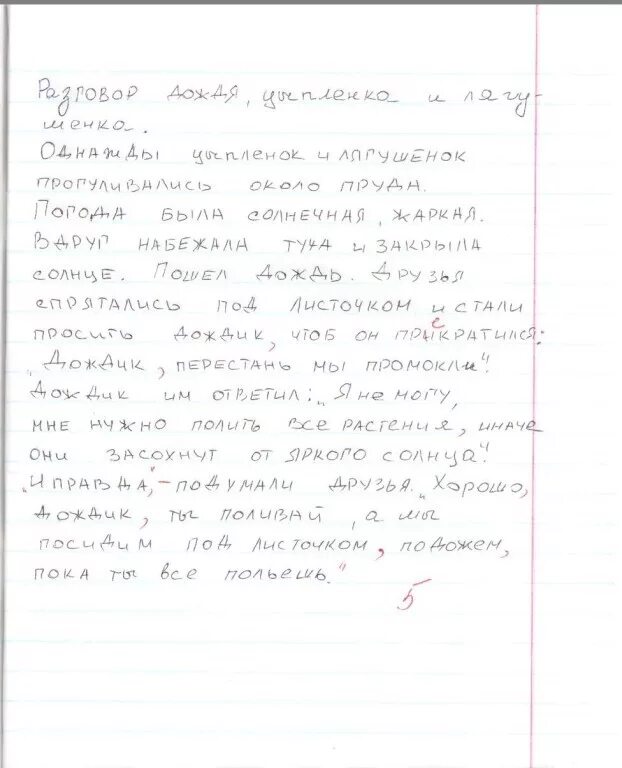 Разговор дождя, цыпленка и лягу-
шенка.
Однажды цыпленок и лягушенок
прогуливались около пруда.
Погода была солнечная, жаркая.
Вдруг набежала туча и закрыла
солнце. Пошел дождь. Друзья
спрятались под листочком и стали
просить дождик, чтоб он прекратился:
„Дождик, перестань мы промокли"!
Дождик им ответил: „Я не могу,
мне нужно полить все растения, иначе
они засохнут от яркого солнца"!
„И правда", - подумали друзья. „Хорошо,
дождик, ты поливай, а мы
посидим под листочком, подожем,
пока ты все польешь."
5